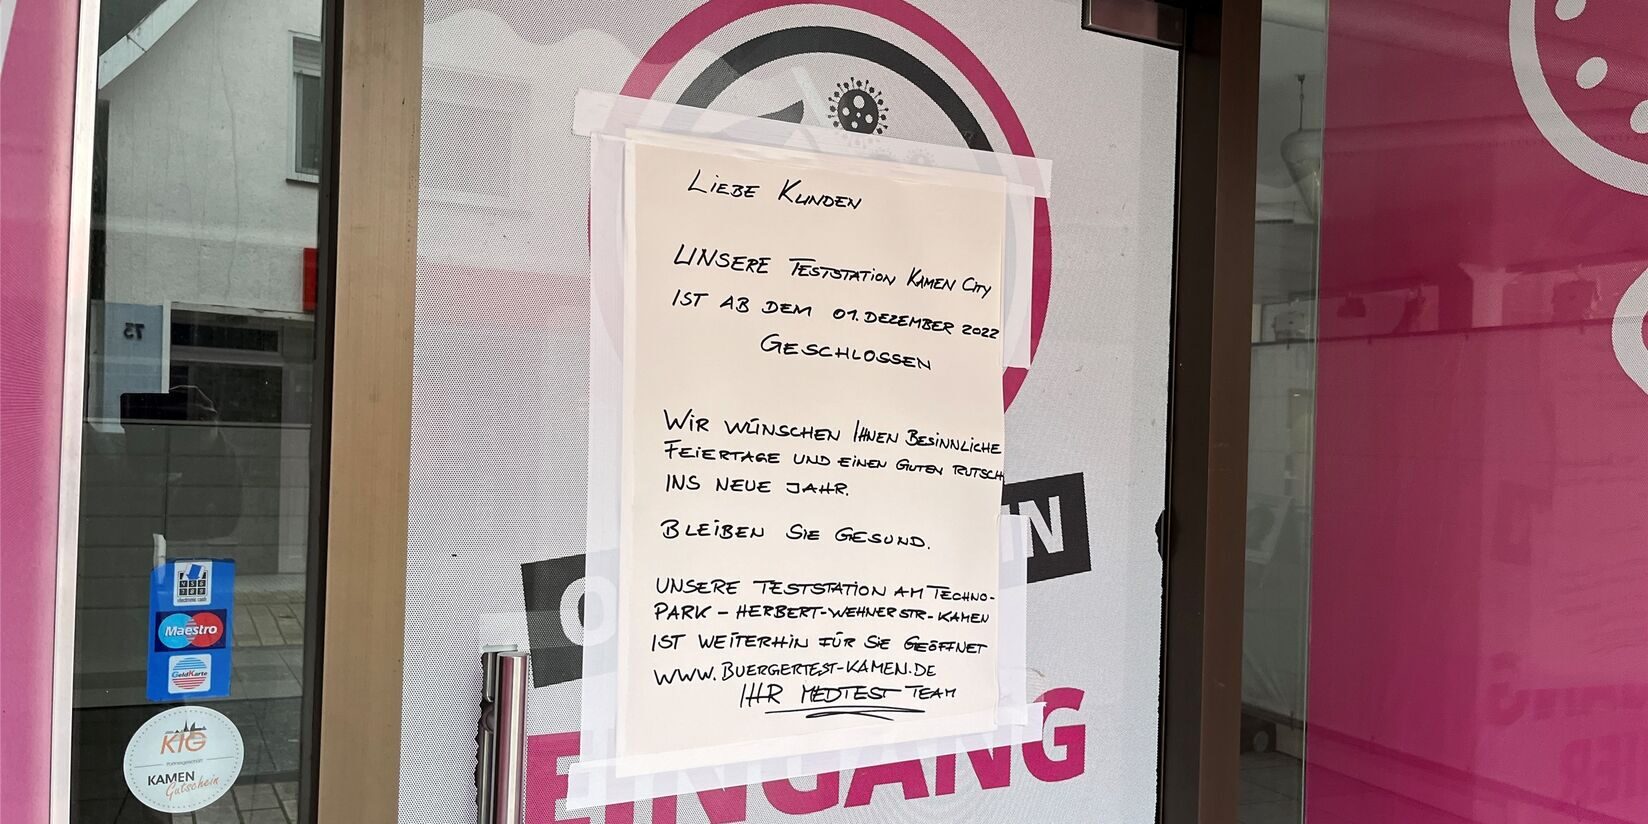 LIEBE KUNDEN
UNSERE TESTSTATION KAMEN CITY
IST AB DEM 01. DEZEMBER 2022
GESCHLOSSEN
WIR WÜNSCHEN IHNEN BESINNLICHE
FEIERTAGE UND EINEN GUTEN RUTSCH
INS NEUE JAHR.
BLEIBEN SIE GESUND.
UNSERE TESTSTATION AM TECHNO-
PARK - HERBERT-WEHNER STR - KAMEN
IST WEITERHIN FÜR SIE GEÖFFNET
WWW.BUERGERTEST-KAMEN.DE
IHR MEDTEST TEAM
EINGANG
electronic cash
Maestro
GeldKarte
KIG
Partnergeschäft
KAMEN
Gutschein
73